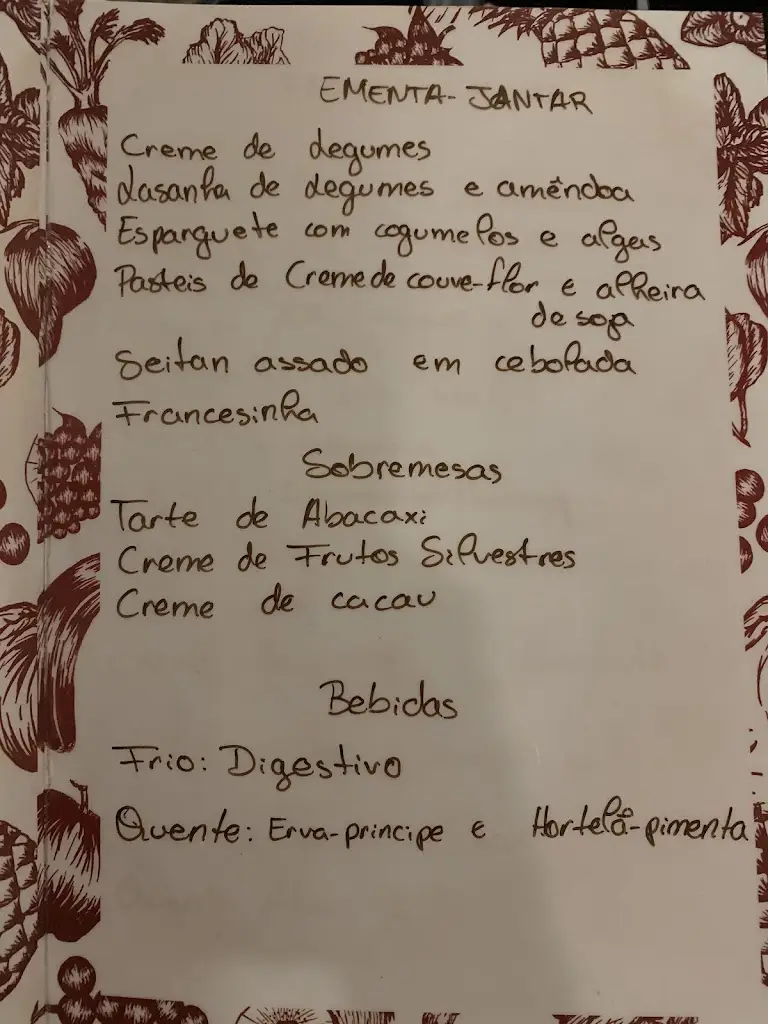 EMENTA-JANTAR
Creme de legumes
Lasanha de legumes e amêndoa
Esparguete com cogumelos e algas
Pasteis de Creme de couve-flor e alheira
de soja
Seitan assado em cebolada
Francesinha
Sobremesas
Tarte de Abacaxi
Creme de Frutos Silvestres
Creme de cacau
Bebidas
Frio: Digestivo
Quente: Erva-principe e Hortelã-pimenta